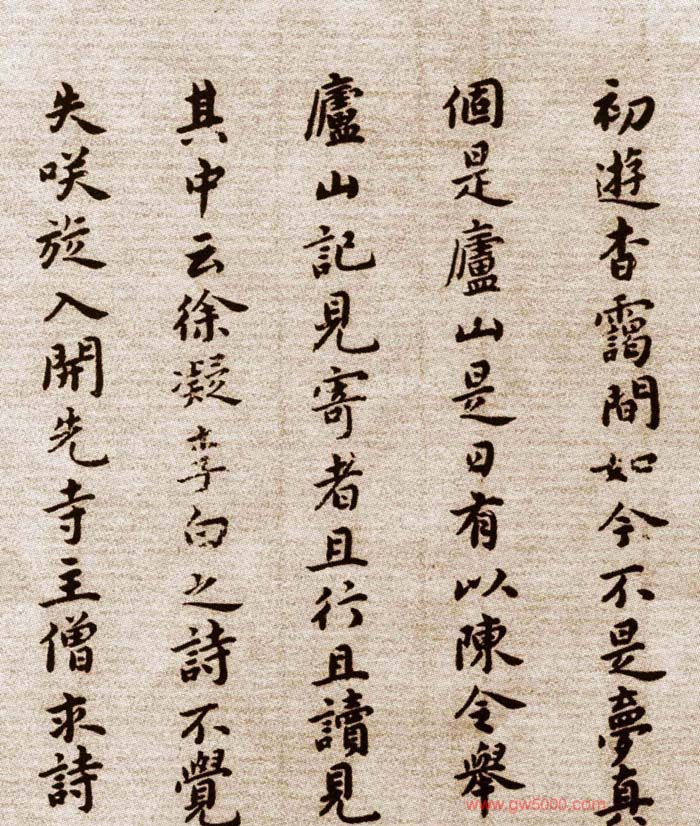 初遊杳靄間如今不是夢真
個是廬山是日有以陳令舉
廬山記見寄者且行且讀見
其中云徐凝李白之詩不覺
失咲旋入開先寺主僧求詩
www.gw5000.com